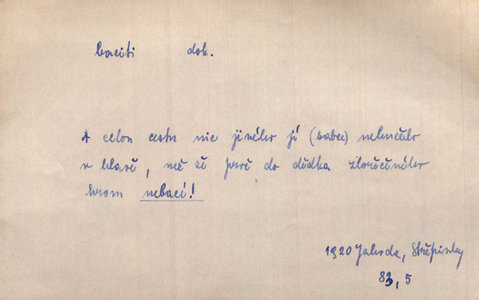 baciti dok.
A celou cestu nic jiného jí (babce) nehučelo
v hlavě, než že prý do dědka zlořečeného
hrom nebací!
1920 Jahoda,
83, 5